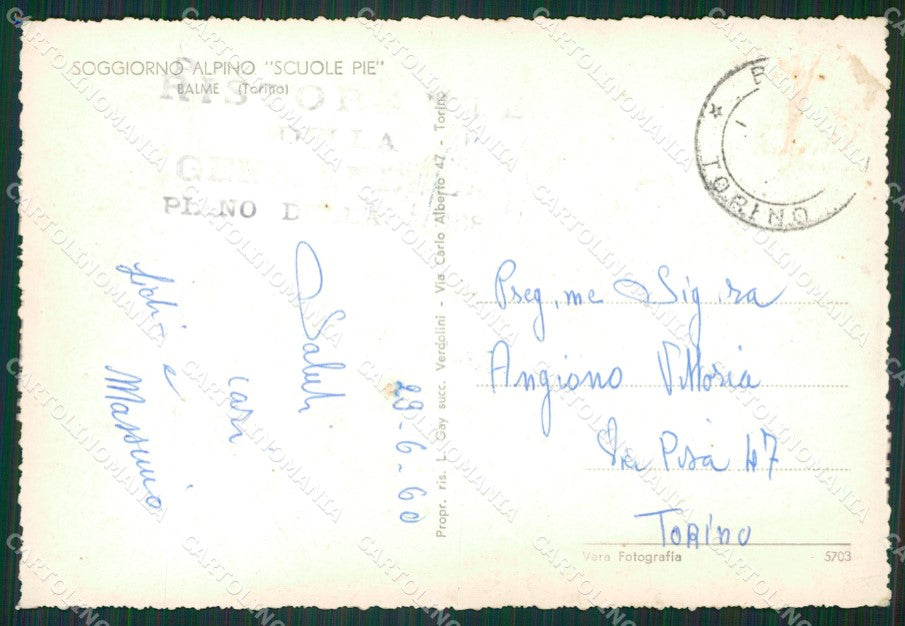 SOGGIORNO ALPINO "SCUOLE PIE"
BALME (Torino)
DELLA
PIANO DELLA
TORINO
Propr. ris. L. Gay succ. Verdolini - Via Carlo Alberto 47 - Torino
29-6-60
Saluti
cari
e
Massimo
Preg.me Sig.ra
Angiono Vittoria
Via Pisa 47
TORINO
Vera Fotografia 5703
CARTOLINOMANIA